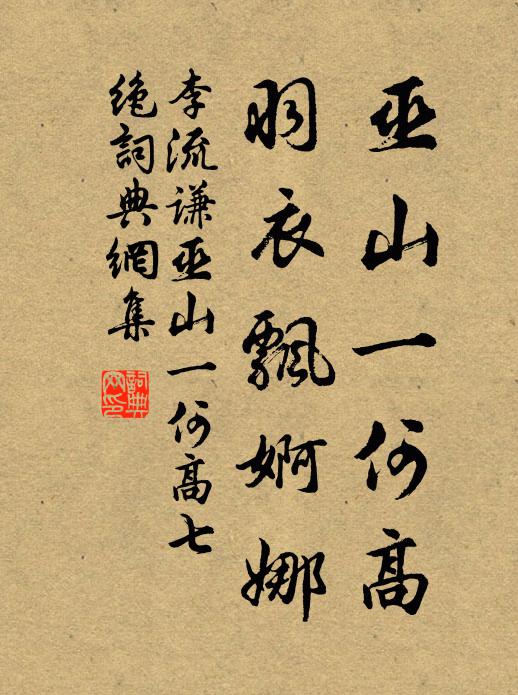 巫山一何高
羽衣飄婀娜
李流謙巫山一何高七
絶詞典網集
詞典
网印